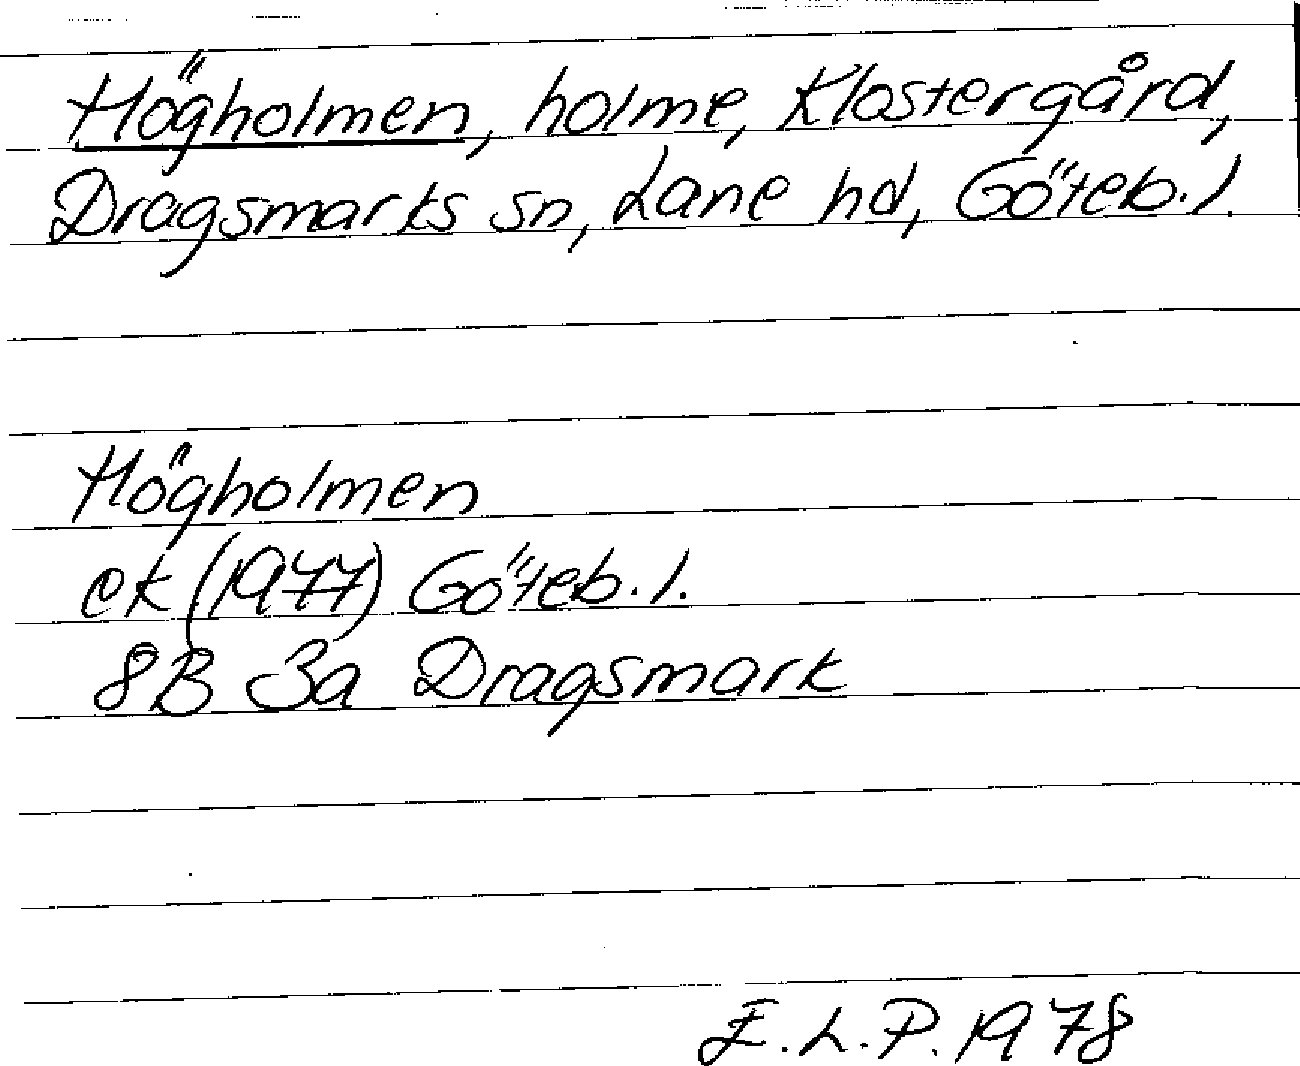 Högholmen, holme, Klostergård,
Dragsmarks sn, Lane hd, Göteb.l.
Högholmen
ek (1977) Göteb.l.
8B 3a Dragsmark
E.L.P. 1978